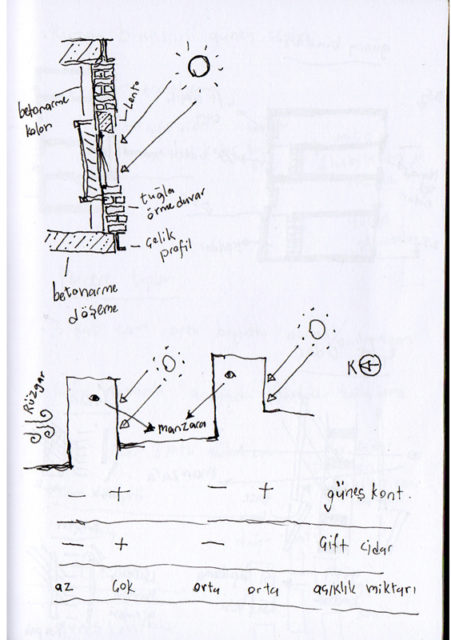 Lento
betonarme
kolon
tuğla
örme duvar
çelik
profil
betonarme
döşeme
Rüzgar
manzara
K
- + - + güneş kont.
- + - Çift cidar
az Çok orta orta açıklık miktarı